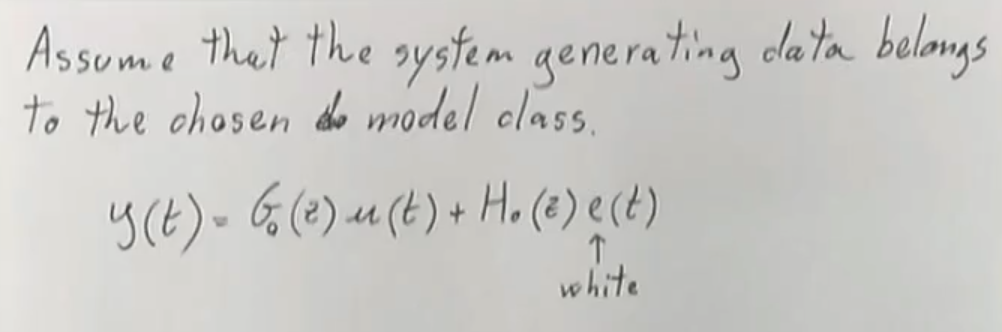 Assume that the system generating data belongs
to the chosen model class.
y(t) = G₀(z) u(t) + H₀(z) e(t)
↑
white